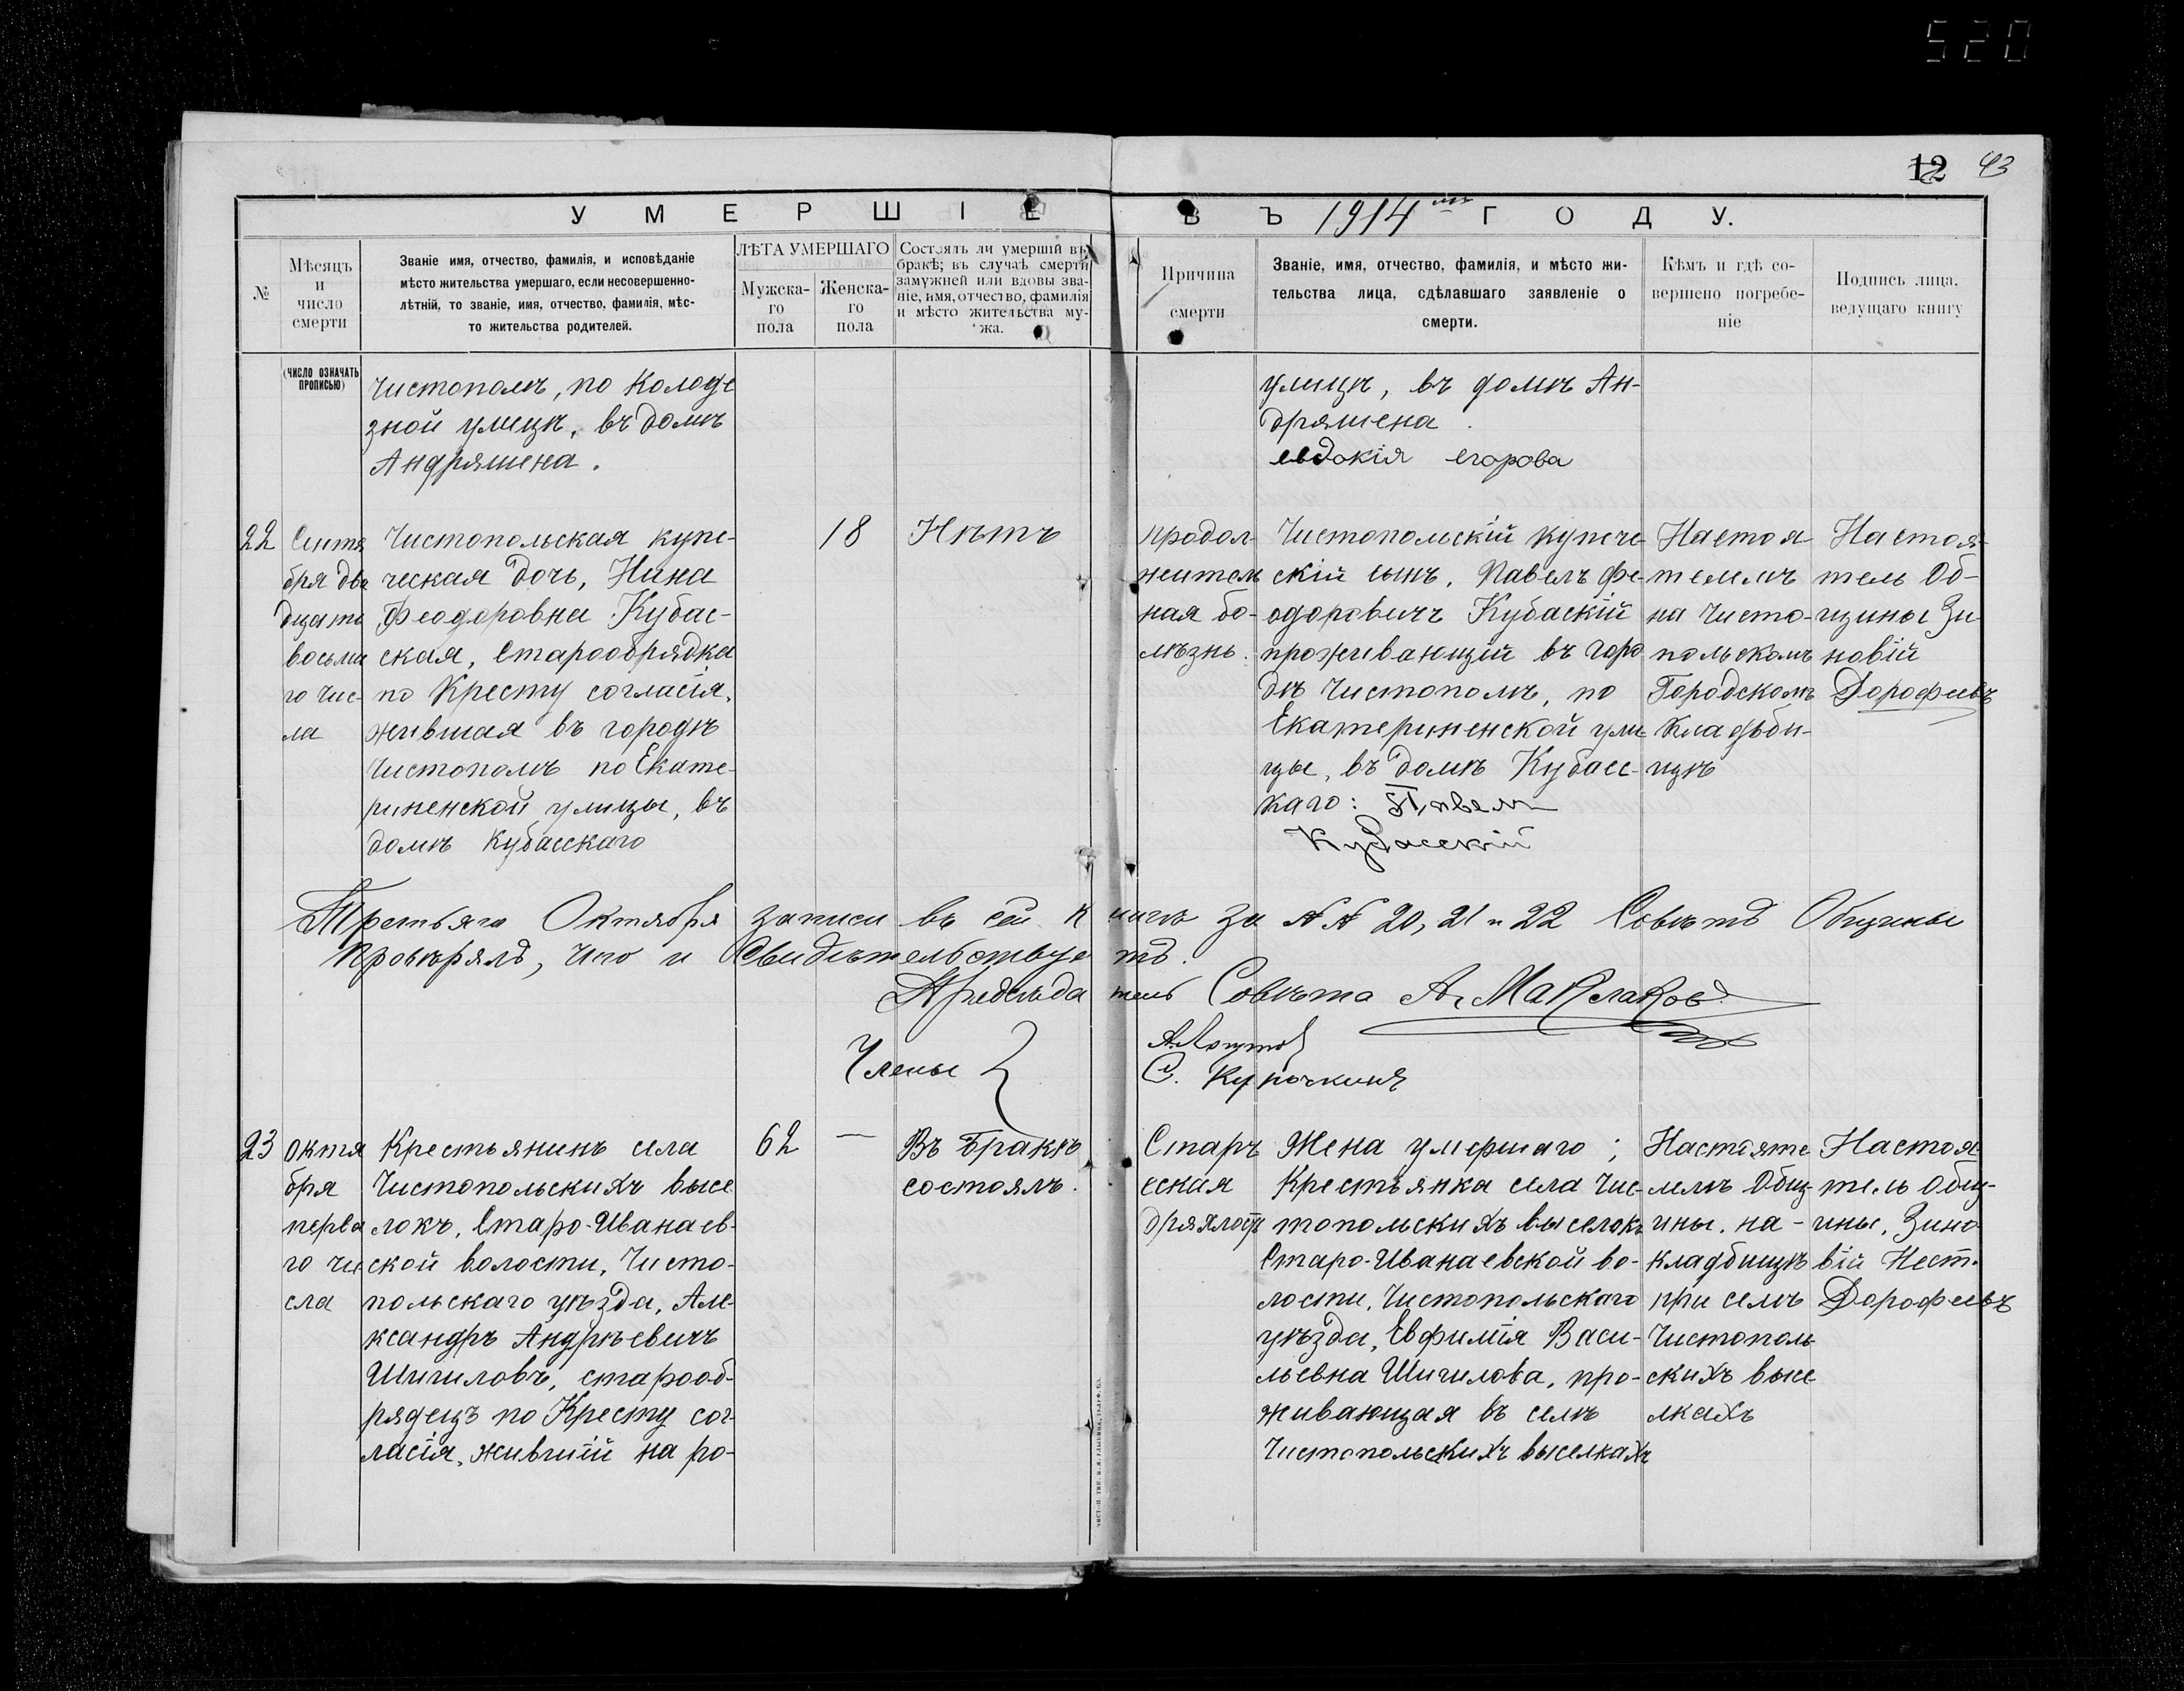 520
12 43
УМЕРШІЕ
ВЪ 1914мъ ГОДУ.
№
Мѣсяцъ
и
число
смерти
Званіе имя, отчество, фамилія, и исповѣданіе
мѣсто жительства умершаго, если несовершенно-
лѣтній, то званіе, имя, отчество, фамилія, мѣс-
то жительства родителей.
ЛѢТА УМЕРШАГО
Мужска-
го
пола
Женска-
го
пола
Состоялъ ли умершій въ
бракѣ; въ случаѣ смерти
замужней или вдовы зва-
ніе, имя, отчество, фамилія
и мѣсто жительства му-
жа.
Причина
смерти
Званіе, имя, отчество, фамилія, и мѣсто жи-
тельства лица, сдѣлавшаго заявленіе о
смерти.
Кѣмъ и гдѣ со-
вершено погребе-
ніе
Подпись лица,
ведущаго книгу
(ЧИСЛО ОЗНАЧАТЬ
ПРОПИСЬЮ)
Чистополѣ, по Колоде
зной улицѣ, въ домѣ
Андряшена.
улицѣ, въ домѣ Ан-
дряшена.
евдокія егорова
22
Сентя
бря два
дцать
восьма
го чис-
ла
Чистопольская купе-
ческая дочь, Нина
Феодоровна Кубас-
ская, Старообрядка
по Кресту согласія,
жившая въ городѣ
Чистополѣ по Екате-
риненской улицы, въ
домѣ Кубасскаго
18
Нѣтъ
продол-
житель
ная бо-
лѣзнь.
Чистопольскій купече-
скій сынъ, Павелъ Фе-
одоровичъ Кубаскій
проживающій въ горо
дѣ Чистополѣ, по
Екатериненской ули-
цы, въ домѣ Кубасс-
каго: Павелъ
Кубасскій
Настоя
телемъ
на Чисто-
польскомъ
Городскомъ
Кладьби-
щѣ
Настоя-
тель Об-
щины Зи-
новій
Дорофеевъ
Третьяго Октября записи въ сей книгѣ за №№ 20, 21 и 22 Совѣтъ Общины
провѣрялъ, что и Свидѣтельствуетъ.
Предсѣдатель Совѣта А. Маклаковъ
Члены
А. Логутов
С. Курочкинъ
23
октя
бря
перва
го чи
сла
Крестьянинъ села
Чистопольскихъ высе
локъ, Старо-Иванаев-
ской волости, Чисто-
польскаго уѣзда, Але-
ксандръ Андрѣевичъ
Шигиловъ, старооб-
рядецъ по Кресту сог-
ласія, жившій на ро-
62
—
Въ Бракѣ
состоялъ.
Старч
еская
дряхлость
Жена умершаго;
Крестьянка села Чис-
топольскихъ выселокъ
Старо-Иванаевской во-
лости, Чистопольскаго
уѣзда, Евфимія Васи-
льевна Шигилова, про-
живающая въ селѣ
Чистопольскихъ выселкахъ
Настояте
лемъ Общ-
ины, на-
кладбищѣ
при селѣ
Чистополь
скихъ высе
лкахъ
Настоя-
тель Общ-
ины, Зино
вій Нест.
Дорофеевъ